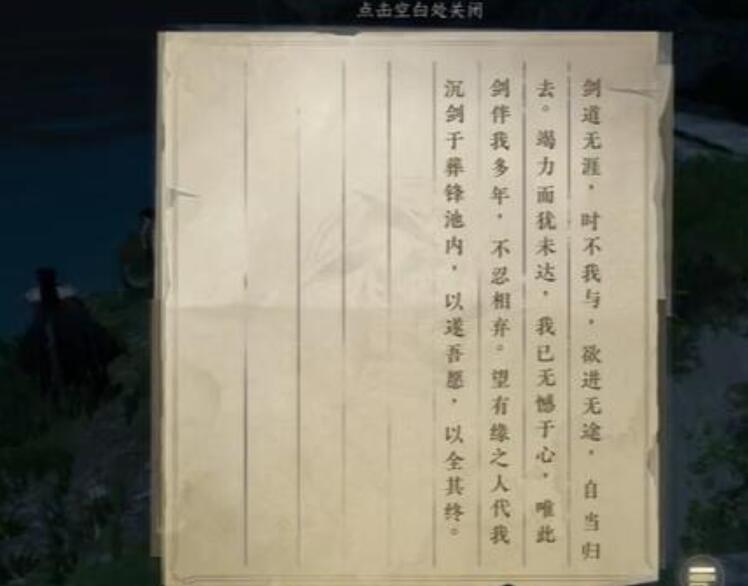 点击空白处关闭
剑道无涯，时不我与，欲进无途，自当归
去。竭力而犹未达，我已无憾于心，唯此
剑伴我多年，不忍相弃。望有缘之人代我
沉剑于葬锋池内，以遂吾愿，以全其终。